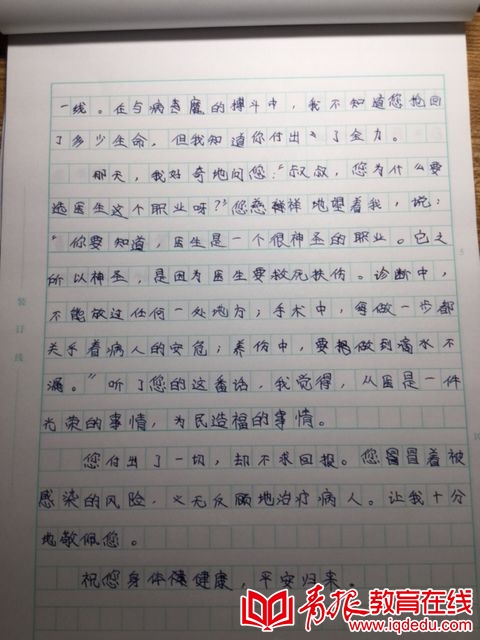 一线。在与病魔的搏斗中，我不知道您抢回
了多少生命，但我知道你付出了全力。
那天，我好奇地问您：“叔叔，您为什么要
选医生这个职业呀？”您慈祥地望着我，说：
“你要知道，医生是一个很神圣的职业。它之
所以神圣，是因为医生要救死扶伤。诊断中，
不能放过任何一处地方；手术中，每做一步都
关乎着病人的安危；养伤中，要做到滴水不
漏。”听了您的这番话，我觉得，从医是一件
光荣的事情，为民造福的事情。
您付出了一切，却不求回报。您冒着被
感染的风险，义无反顾地治疗病人。让我十分
地敬佩您。
祝您身体健康，平安归来。
装订线
5
10
青报教育在线
www.iqdedu.com